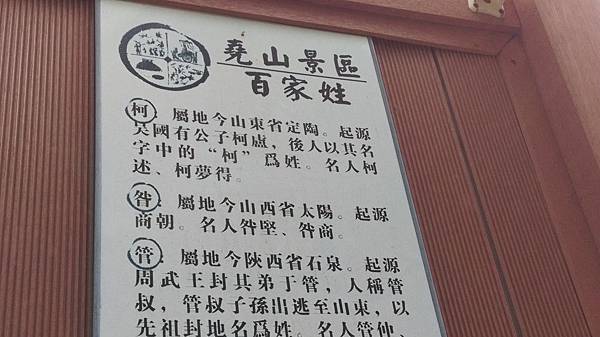 堯山景區
百家姓
柯：屬地今山東省定陶。起源
吴國有公子柯盧，後人以其名
字中的“柯”爲姓。名人柯
述、柯夢得。
昝：屬地今山西省太陽。起源
商朝。名人昝堅、昝商。
管：屬地今陝西省石泉。起源
周武王封其弟于管，人稱管
叔，管叔子孫出逃至山東，以
先祖封地名爲姓。名人管仲、